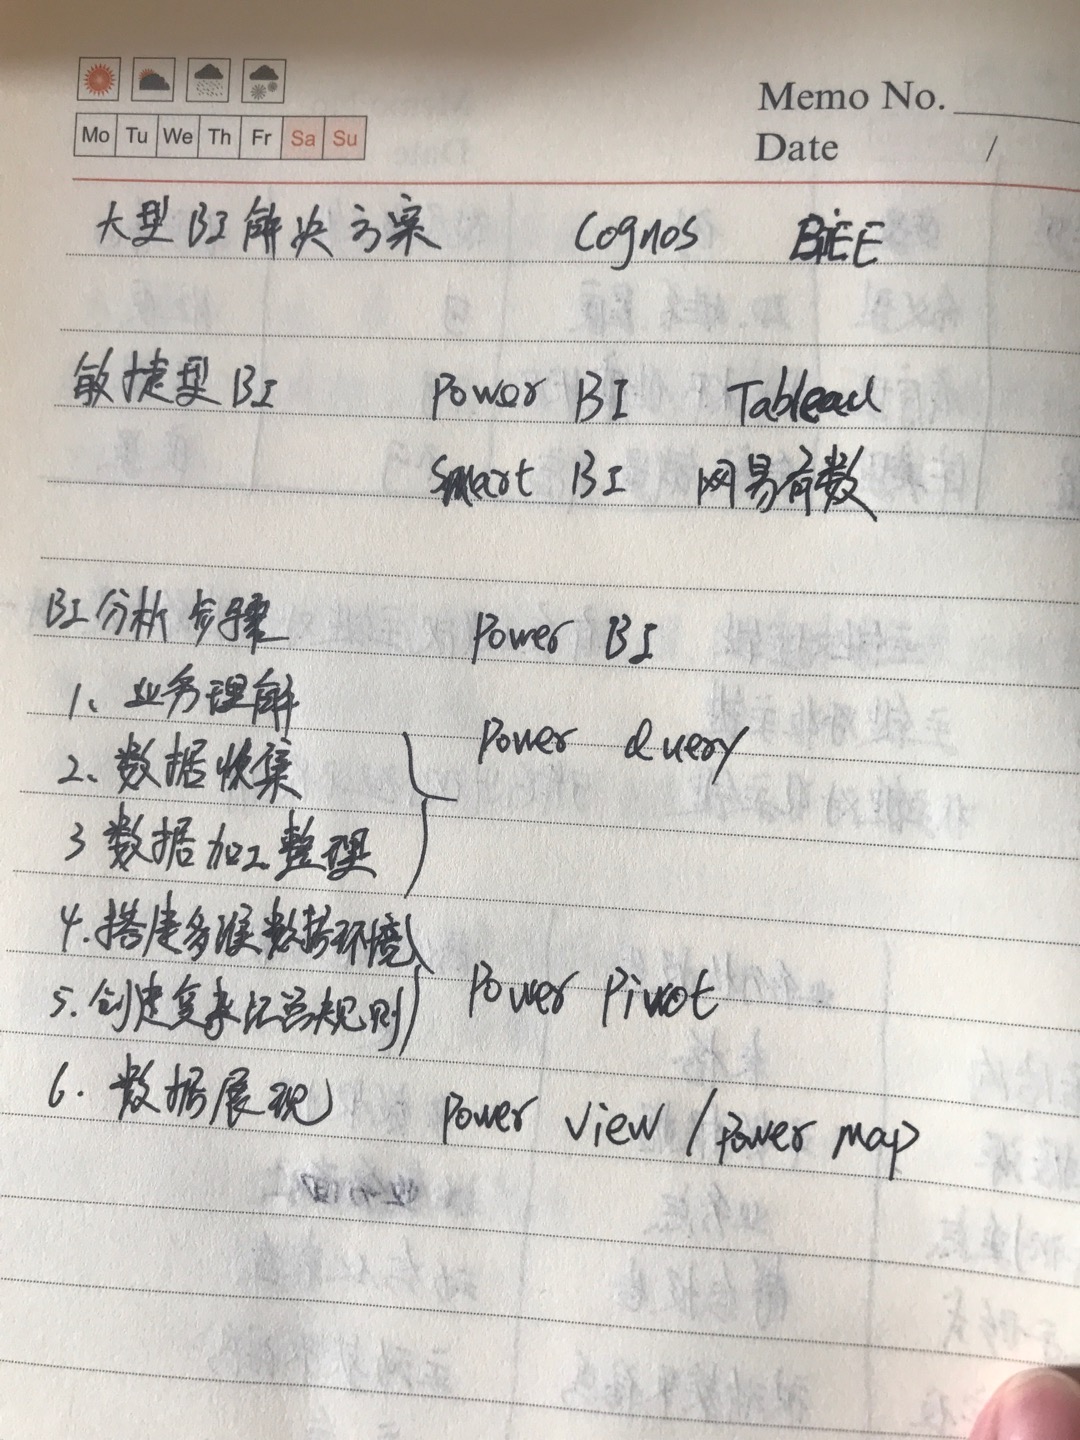 Memo No.
Mo Tu We Th Fr Sa Su
Date /
大型BI解决方案 Cognos BIEE
敏捷型BI Power BI Tableau
Smart BI 网易有数
BI分析步骤 Power BI
1、业务理解
2、数据收集 Power Query
3 数据加工整理
4.搭建多维数据环境
5.创建复杂运营规则 Power Pivot
6.数据展现 Power View / Power Map